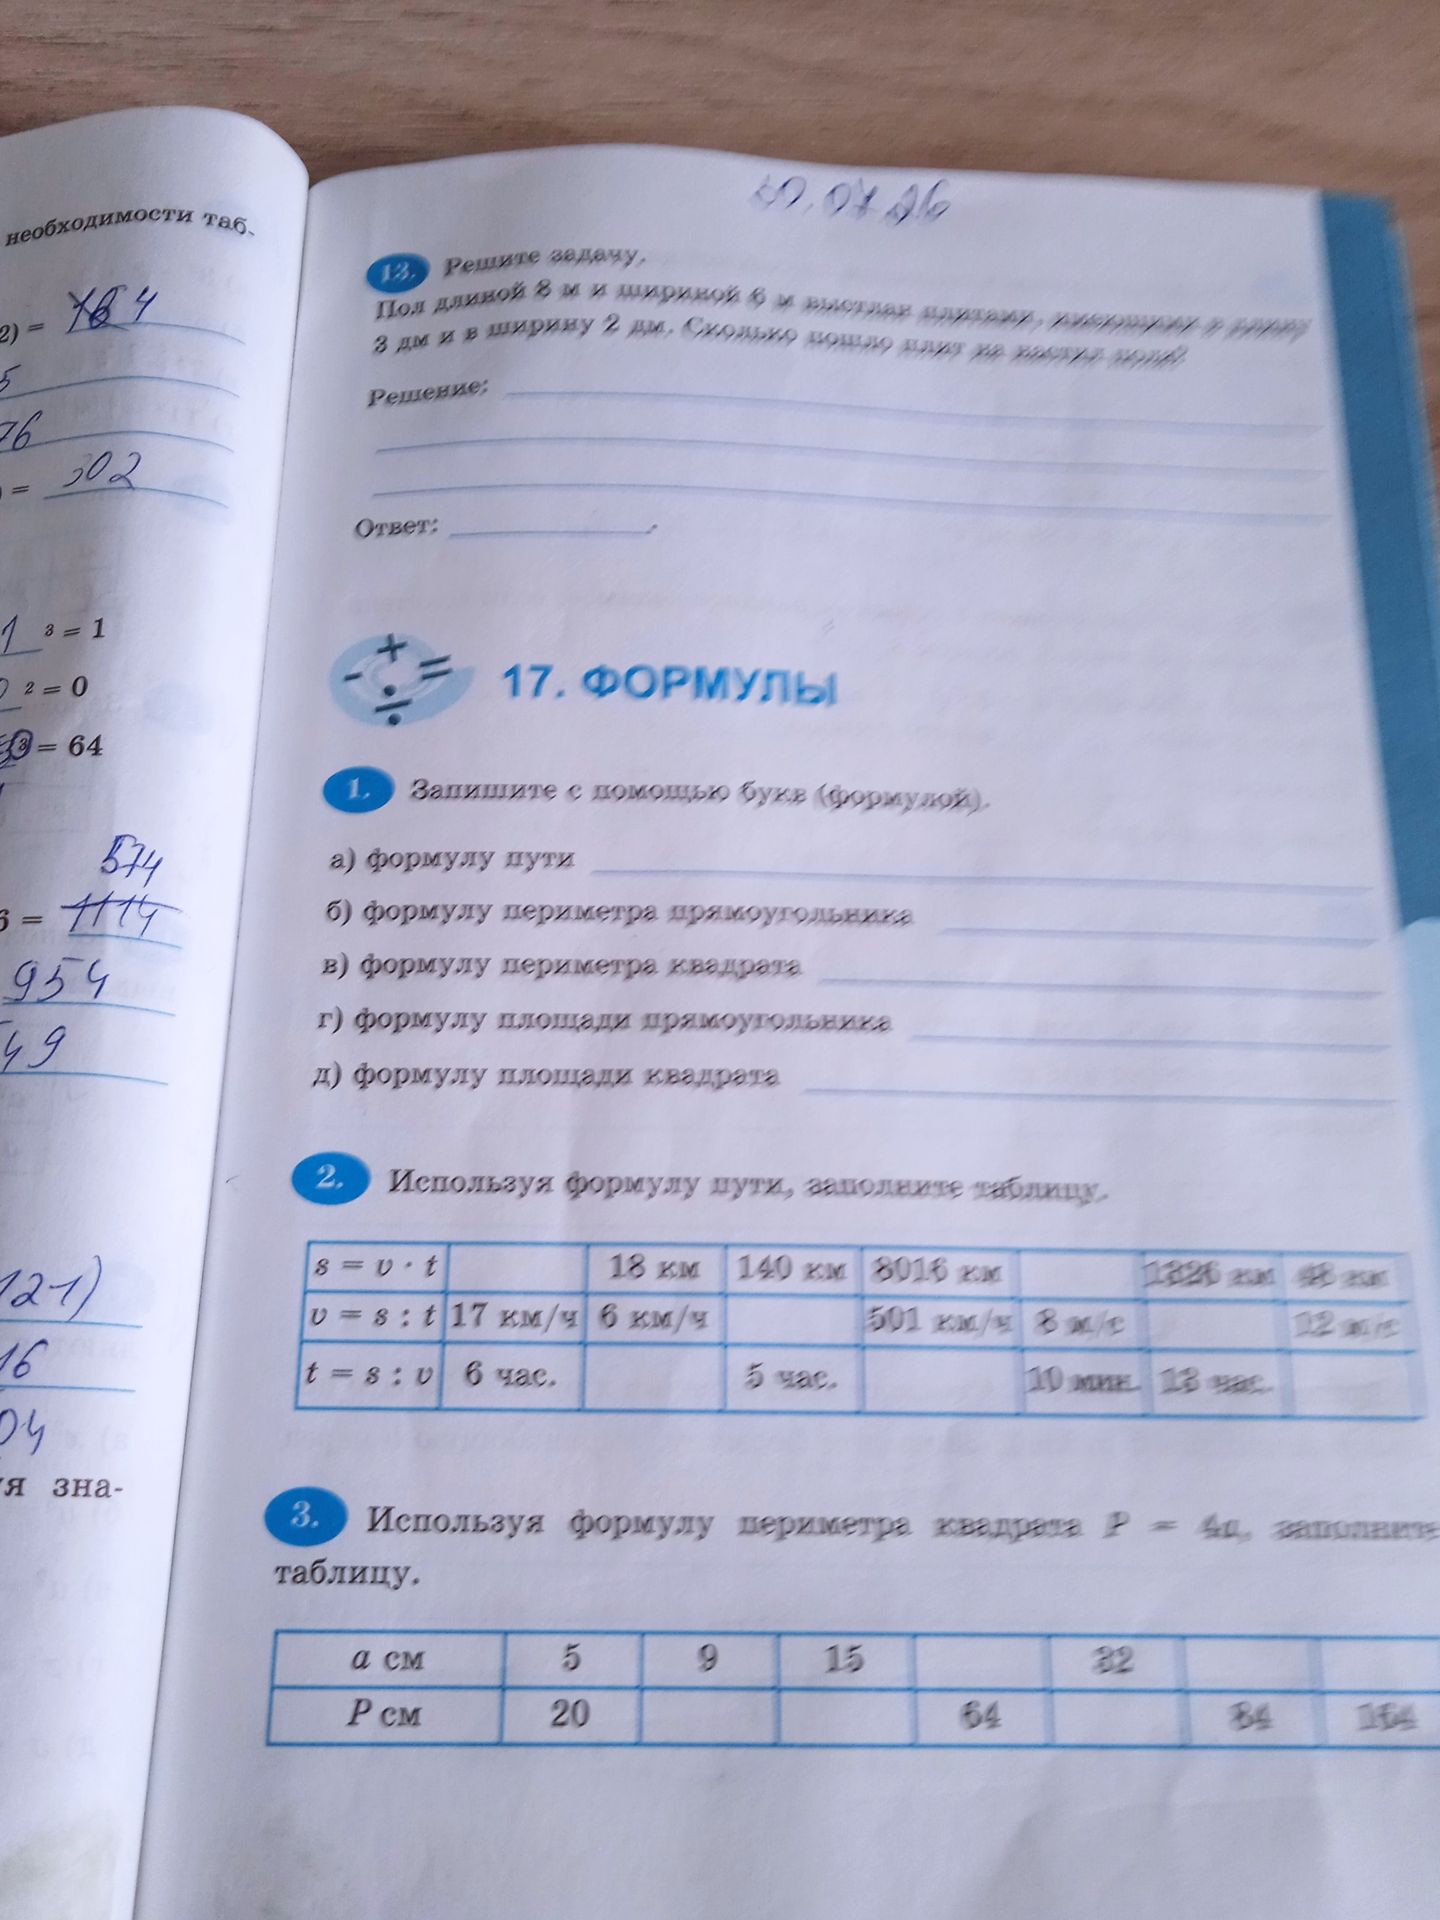 необходимости таб-
2) = 4
5
76
) = 302
1 ³ = 1
² = 0
³ = 64
574
6 = 1114
954
49
121)
16
04
я зна-
13. Решите задачу.
Пол длиной 8 м и шириной 6 м выстлан плитами, имеющими в длину
3 дм и в ширину 2 дм. Сколько пошло плит на настил пола?
Решение:
Ответ: .
17. ФОРМУЛЫ
1. Запишите с помощью букв (формулой).
а) формулу пути
б) формулу периметра прямоугольника
в) формулу периметра квадрата
г) формулу площади прямоугольника
д) формулу площади квадрата
2. Используя формулу пути, заполните таблицу.
s = v · t 18 км 140 км 8016 км 1326 км 48 км
v = s : t 17 км/ч 6 км/ч 501 км/ч 8 м/с 12 м/с
t = s : v 6 час. 5 час. 10 мин. 13 час.
3. Используя формулу периметра квадрата P = 4a, заполните
таблицу.
a см 5 9 15 32
P см 20 64 84 164